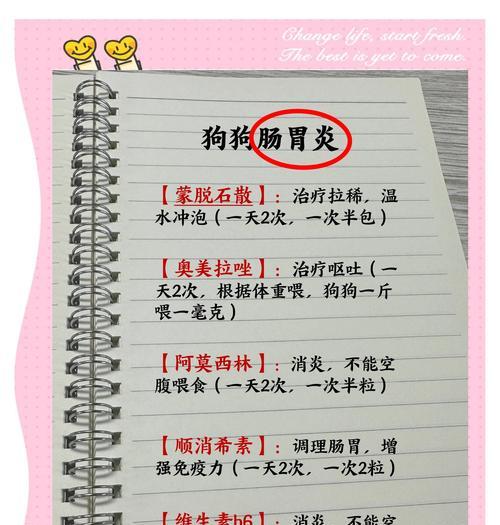 Change life, start fresh.
The best is yet to come.
狗狗肠胃炎
【蒙脱石散】：治疗拉稀，温
水冲泡（一天2次，一次半包）
【奥美拉唑】：治疗呕吐（一
天2次，根据体重喂，狗狗一斤
喂一毫克）
【阿莫西林】：消炎，不能空
腹喂食（一天2次，一次半粒）
【顺消希素】：调理肠胃，增
强免疫力（一天2次，一次2粒）
【维生素b6】：消炎，不能空